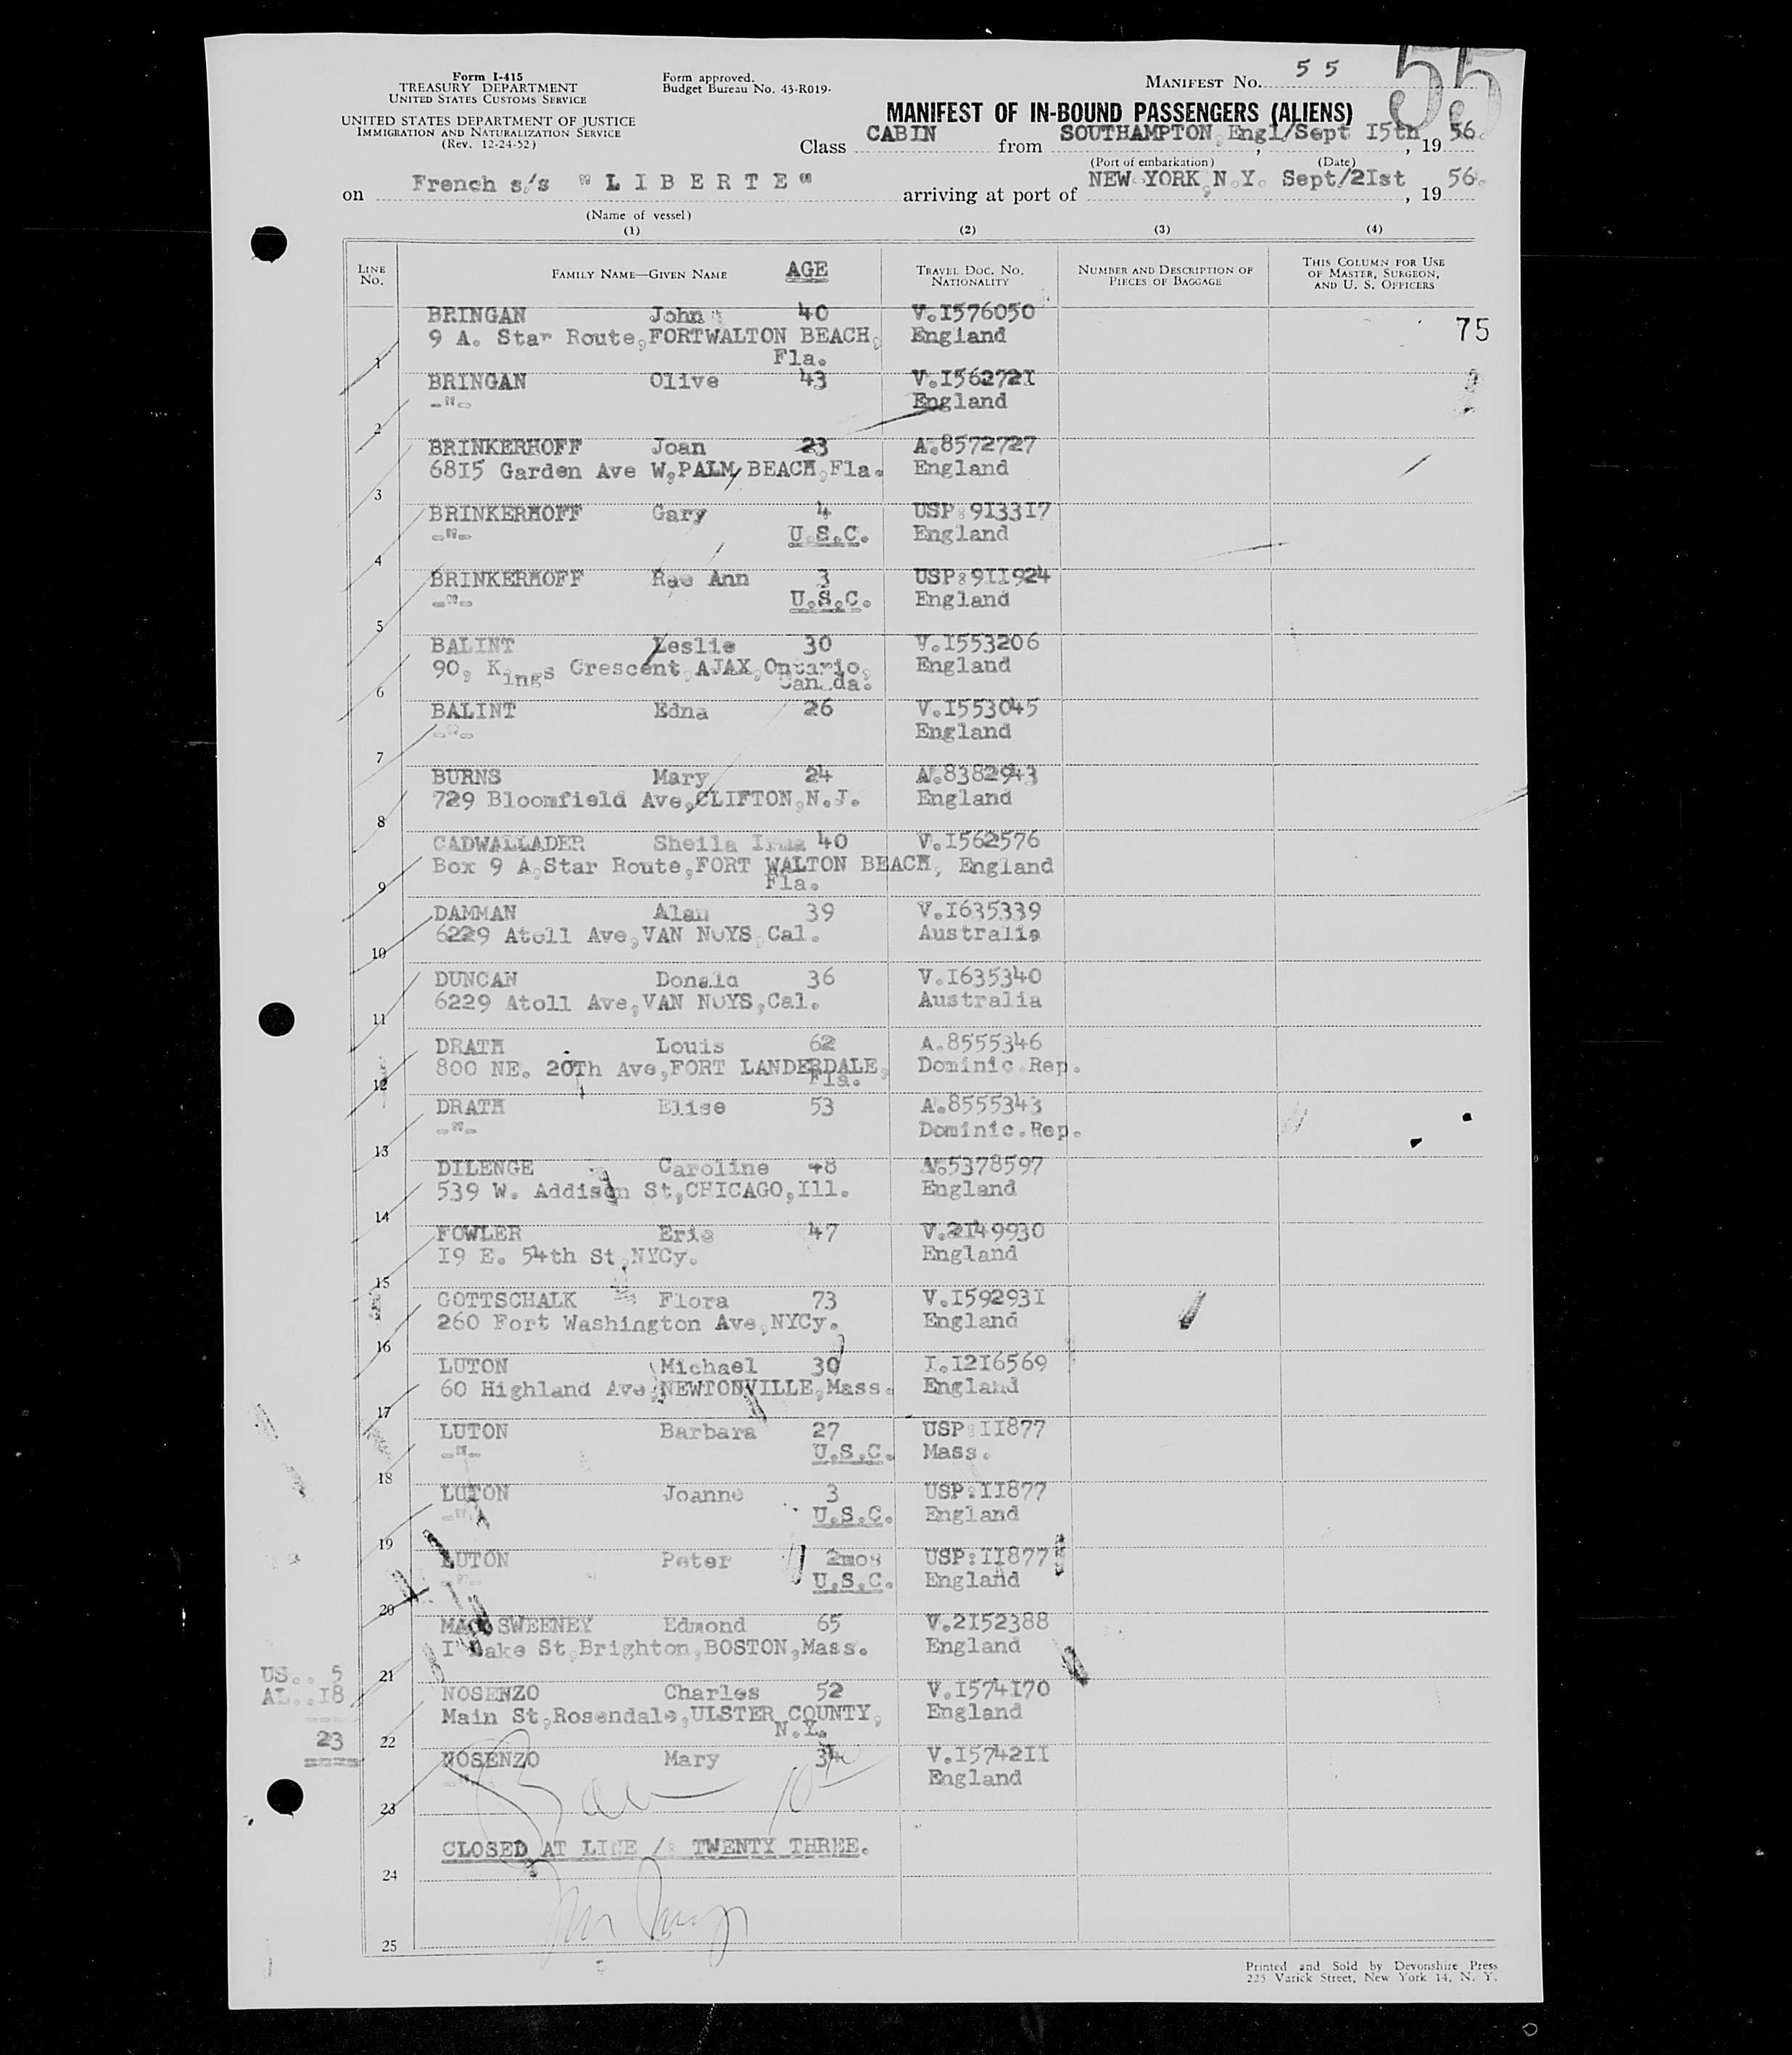 Form I-415
TREASURY DEPARTMENT
UNITED STATES CUSTOMS SERVICE
UNITED STATES DEPARTMENT OF JUSTICE
IMMIGRATION AND NATURALIZATION SERVICE
(Rev. 12-24-52)
Form approved.
Budget Bureau No. 43-R019-
MANIFEST No. 5 5
55
MANIFEST OF IN-BOUND PASSENGERS (ALIENS)
Class CABIN from SOUTHAMPTON, Engl/Sept I5th, 19 56.
(Port of embarkation) (Date)
on French s/s "L I B E R T E" arriving at port of NEW-YORK, N.Y. Sept/2Ist, 19 56.
(Name of vessel)
(1) (2) (3) (4)
LINE No. FAMILY NAME—GIVEN NAME AGE TRAVEL DOC. NO. NATIONALITY NUMBER AND DESCRIPTION OF PIECES OF BAGGAGE THIS COLUMN FOR USE OF MASTER, SURGEON, AND U. S. OFFICERS
BRINGAN John 40 V.I576050
9 A. Star Route, FORTWALTON BEACH, England 75
1 Fla.
BRINGAN Olive 43 V.I56272I
-"- England
2
BRINKERHOFF Joan 23 A.8572727
6815 Garden Ave W, PALM BEACH, Fla. England
3
BRINKERHOFF Gary 4 USP:9I33I7
-"- U.S.C. England
4
BRINKERHOFF Rae Ann 3 USP:9II924
-"- U.S.C. England
5
BALINT Leslie 30 V.I553206
90, Kings Crescent, AJAX, Ontario, England
6 Canada.
BALINT Edna 26 V.I553045
-"- England
7
BURNS Mary 24 A.8382943
729 Bloomfield Ave, CLIFTON, N.J. England
8
CADWALLADER Sheila Irma 40 V.I562576
Box 9 A, Star Route, FORT WALTON BEACH, England
9 Fla.
DAMMAN Alan 39 V.I635339
6229 Atoll Ave, VAN NUYS, Cal. Australia
10
DUNCAN Donald 36 V.I635340
6229 Atoll Ave, VAN NUYS, Cal. Australia
11
DRATH Louis 62 A.8555346
800 NE. 20Th Ave, FORT LANDERDALE, Dominic.Rep.
12 Fla.
DRATH Elise 53 A.8555343
-"- Dominic.Rep.
13
DILENGE Caroline 48 A.5378597
539 W. Addison St, CHICAGO, Ill. England
14
FOWLER Eric 47 V.2I49930
I9 E. 54th St, NYCy. England
15
GOTTSCHALK Flora 73 V.I59293I
260 Fort Washington Ave, NYCy. England
16
LUTON Michael 30 I.I2I6569
60 Highland Ave, NEWTONVILLE, Mass. England
17
LUTON Barbara 27 USP:II877
-"- U.S.C. Mass.
18
LUTON Joanne 3 USP:II877
-"- U.S.C. England
19
LUTON Peter 2mos USP:II877
-"- U.S.C. England
20
MAC SWEENEY Edmond 65 V.2I52388
I Lake St, Brighton, BOSTON, Mass. England
US.. 5 21
AL..I8
NOSENZO Charles 52 V.I574I70
Main St, Rosendale, ULSTER COUNTY, England
N.Y.
23 22
NOSENZO Mary 34 V.I5742II
-"- England
23
CLOSED AT LINE /: TWENTY THREE.
24
25
Printed and Sold by Devonshire Press
225 Varick Street, New York 14, N. Y.